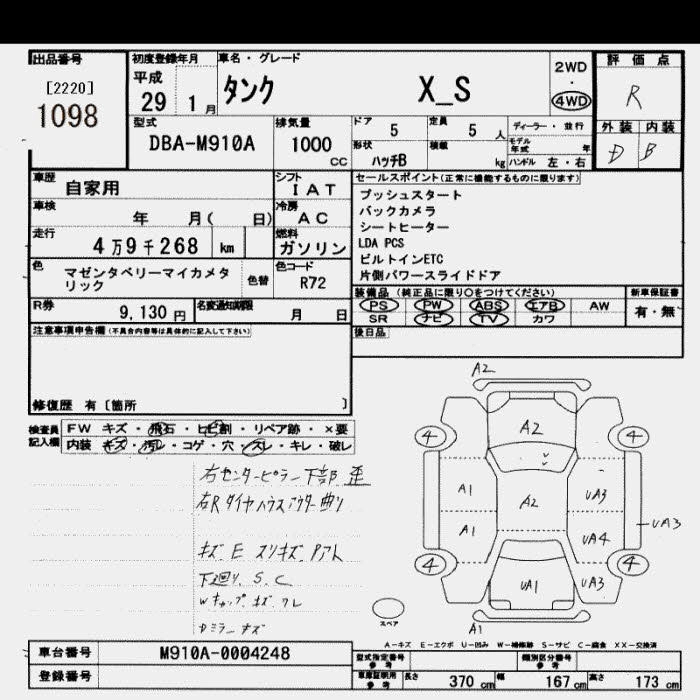 出品番号
[2220]
1098
初度登録年月
平成
29 1月
車名・グレード
タンク X_S
2WD
・
4WD
評価点
R
外装 内装
D B
型式
DBA-M910A
排気量
1000
CC
ドア
5
定員
5 人
ディーラー・並行
形状
ハッチB
積載
kg
モデル年式 年
ハンドル 左・右
車歴
自家用
シフト
IAT
車検
年 月( 日)
冷房
AC
走行
4万9千268 km
燃料
ガソリン
色
マゼンタベリーマイカメタリック
色替
色コード
R72
R券
9,130 円
名変通知期限
月 日
セールスポイント(正常に機能するものに限ります)
プッシュスタート
バックカメラ
シートヒーター
LDA PCS
ビルトインETC
片側パワースライドドア
装備品 (純正品に限り○をつけてください)
PS PW ABS エアB AW
SR ナビ TV カワ
新車保証書
有・無
後日品
注意事項申告欄(不具合内容等は具体的に記入して下さい)
修復歴 有〔箇所 〕
検査員記入欄
FW キズ・飛石・ヒビ割・リペア跡・×要
内装 キズ・汚レ・コゲ・穴・スレ・キレ・破レ
右センターピラー下部 歪
右Rダイヤハウスアウター曲り
キズ E スリキズ Pアト
下廻り、S、C
Wキャップ キズ ワレ
Dミラー キズ
A2
4 A2 4
A1 A2 UA3
A1 UA4 UA3
4 UA1 UA3 4
A1
スペア
A－キズ E－エクボ U－凹み W－補修跡 S－サビ C－腐食 XX－交換済
車台番号
M910A-0004248
登録番号
型式指定番号
参考
類別区分番号
参考
車庫証明用
参考
長さ 370 cm 幅 167 cm 高さ 173 cm